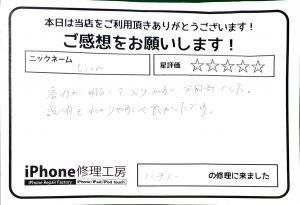 本日は当店をご利用頂きありがとうございます！
ご感想をお願いします！
ニックネーム
星評価 ☆☆☆☆☆
店内が明るくて入りやすい
説明もわかりやすくて良かったです。
iPhone修理工房
iPhone Repair Factory iPhone/iPad/iPod touch
バッテリー の修理に来ました